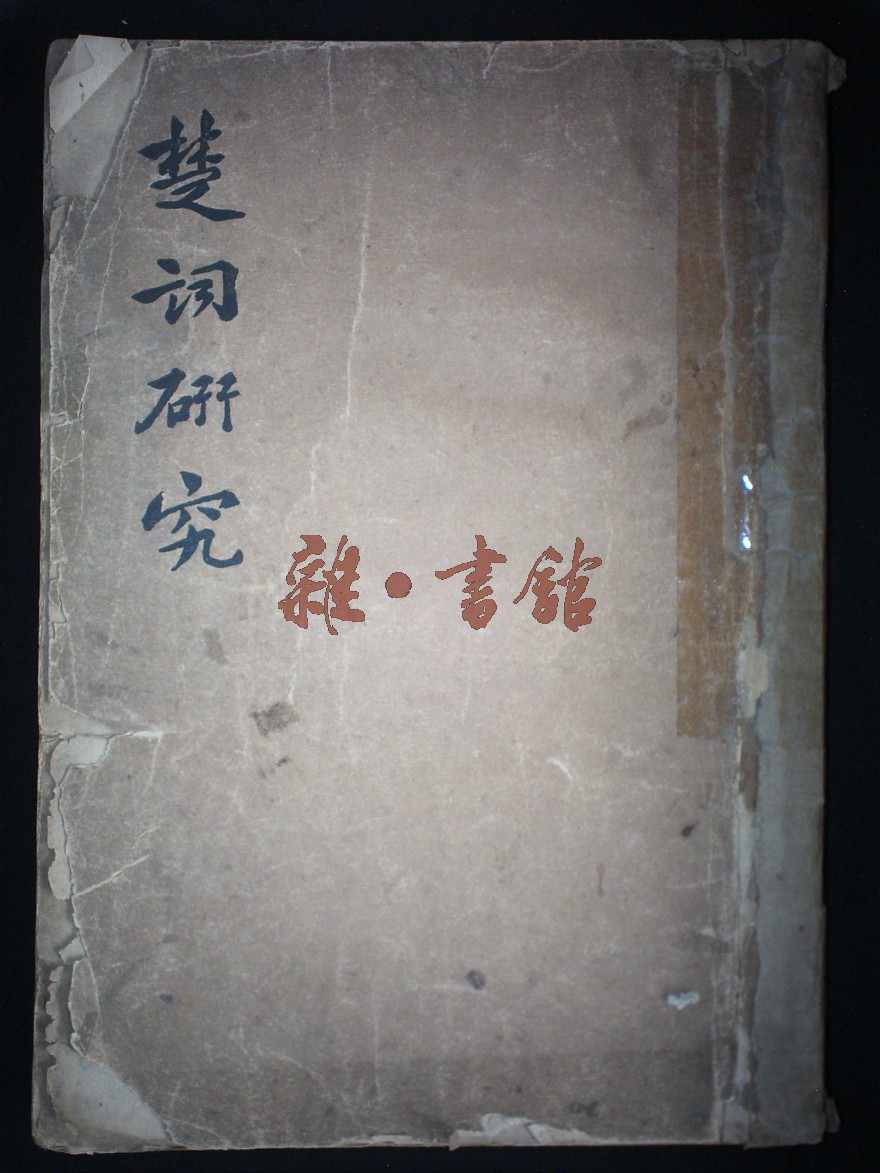 楚词研究
雜·書館